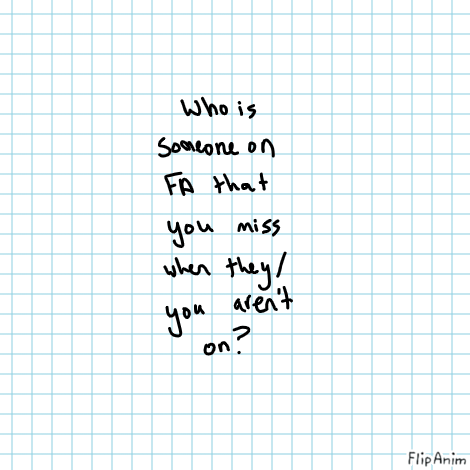 Who is
Someone on
FA that
you miss
when they/
you aren't
on?
FlipAnim